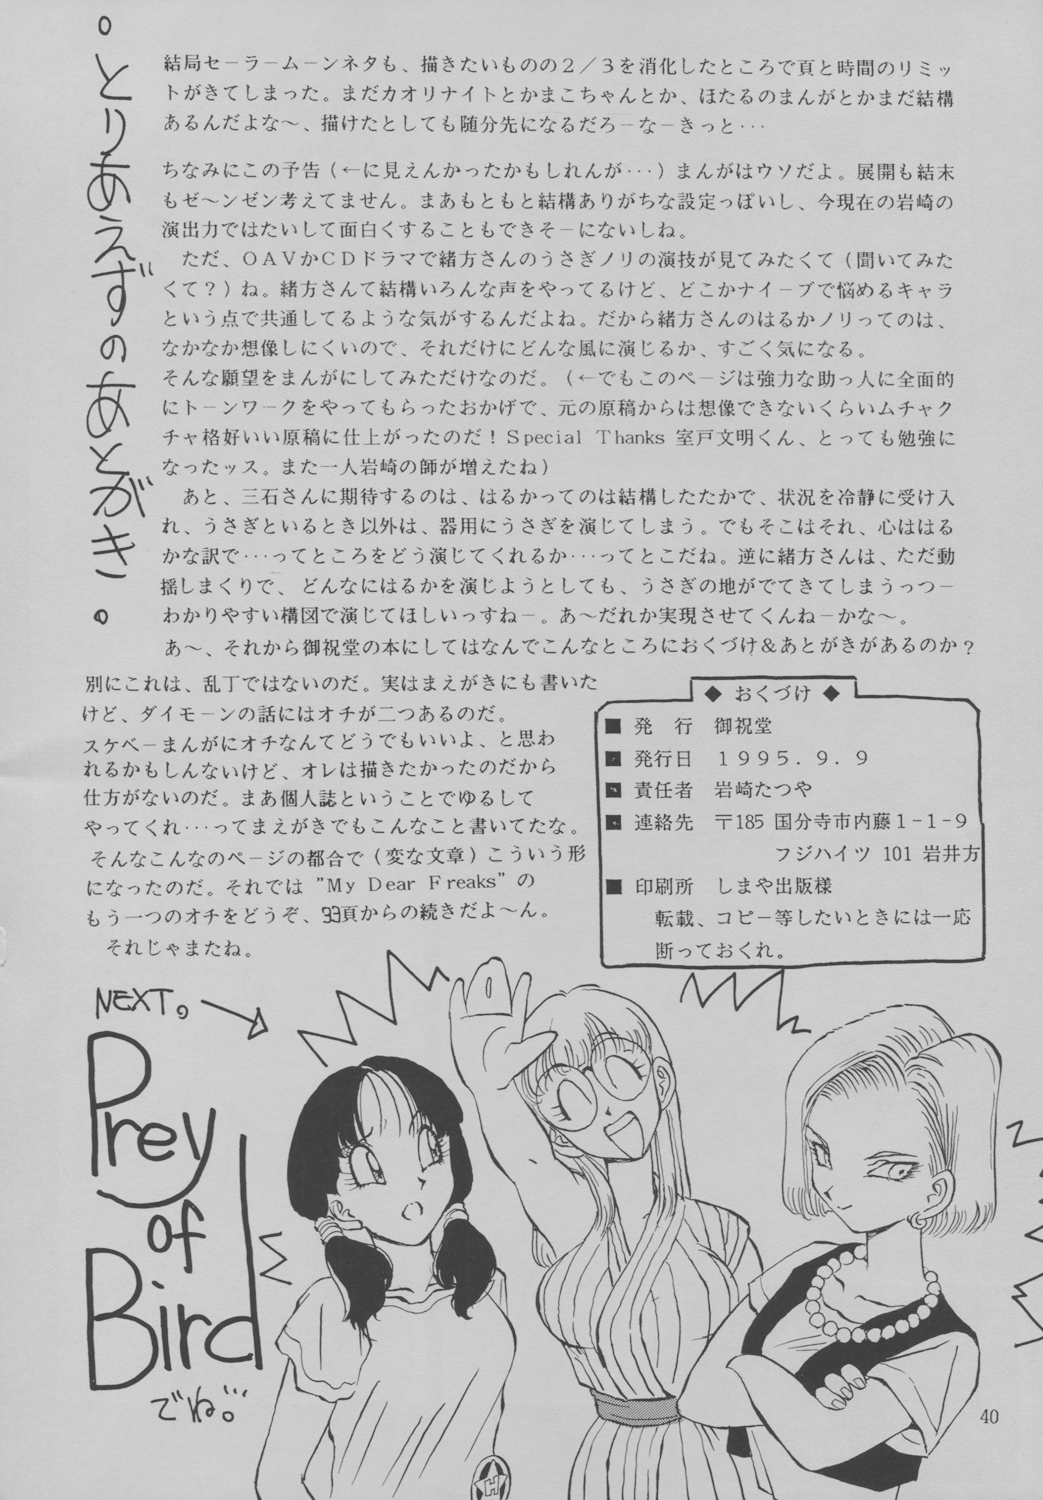 とりあえずのあとがき
結局セーラームーンネタも、描きたいものの２／３を消化したところで頁と時間のリミッ
トがきてしまった。まだカオリナイトとかまこちゃんとか、ほたるのまんがとかまだ結構
あるんだよな〜、描けたとしても随分先になるだろーなーきっと･･･
ちなみにこの予告（←に見えんかったかもしれんが･･･）まんがはウソだよ。展開も結末
もゼ〜ンゼン考えてません。まあもともと結構ありがちな設定っぽいし、今現在の岩崎の
演出力ではたいして面白くすることもできそーにないしね。
　ただ、ＯＡＶかＣＤドラマで緒方さんのうさぎノリの演技が見てみたくて（聞いてみた
くて？）ね。緒方さんて結構いろんな声をやってるけど、どこかナイーブで悩めるキャラ
という点で共通してるような気がするんだよね。だから緒方さんのはるかノリってのは、
なかなか想像しにくいので、それだけにどんな風に演じるか、すごく気になる。
そんな願望をまんがにしてみただけなのだ。（←でもこのページは強力な助っ人に全面的
にトーンワークをやってもらったおかげで、元の原稿からは想像できないくらいムチャク
チャ格好いい原稿に仕上がったのだ！Special Thanks 室戸文明くん、とっても勉強に
なったッス。また一人岩崎の師が増えたね）
　あと、三石さんに期待するのは、はるかってのは結構したたかで、状況を冷静に受け入
れ、うさぎといるとき以外は、器用にうさぎを演じてしまう。でもそこはそれ、心ははる
かな訳で･･･ってところをどう演じてくれるか･･･ってとこだね。逆に緒方さんは、ただ動
揺しまくりで、どんなにはるかを演じようとしても、うさぎの地がでてきてしまうっつー
わかりやすい構図で演じてほしいっすねー。あ〜だれか実現させてくんねーかな〜。
あ〜、それから御祝堂の本にしてはなんでこんなところにおくづけ＆あとがきがあるのか？
別にこれは、乱丁ではないのだ。実はまえがきにも書いた
けど、ダイモーンの話にはオチが二つあるのだ。
スケベーまんがにオチなんてどうでもいいよ、と思わ
れるかもしんないけど、オレは描きたかったのだから
仕方がないのだ。まあ個人誌ということでゆるして
やってくれ･･･ってまえがきでもこんなこと書いてたな。
そんなこんなのページの都合で（変な文章）こういう形
になったのだ。それでは "My Dear Freaks" の
もう一つのオチをどうぞ、33頁からの続きだよ〜ん。
　それじゃまたね。
◆ おくづけ ◆
■ 発　行　御祝堂
■ 発行日　１９９５．９．９
■ 責任者　岩崎たつや
■ 連絡先　〒185 国分寺市内藤１-１-９
フジハイツ 101 岩井方
■ 印刷所　しまや出版様
転載、コピー等したいときには一応
断っておくれ。
NEXT。
Prey
of
Bird
でね。
H
40